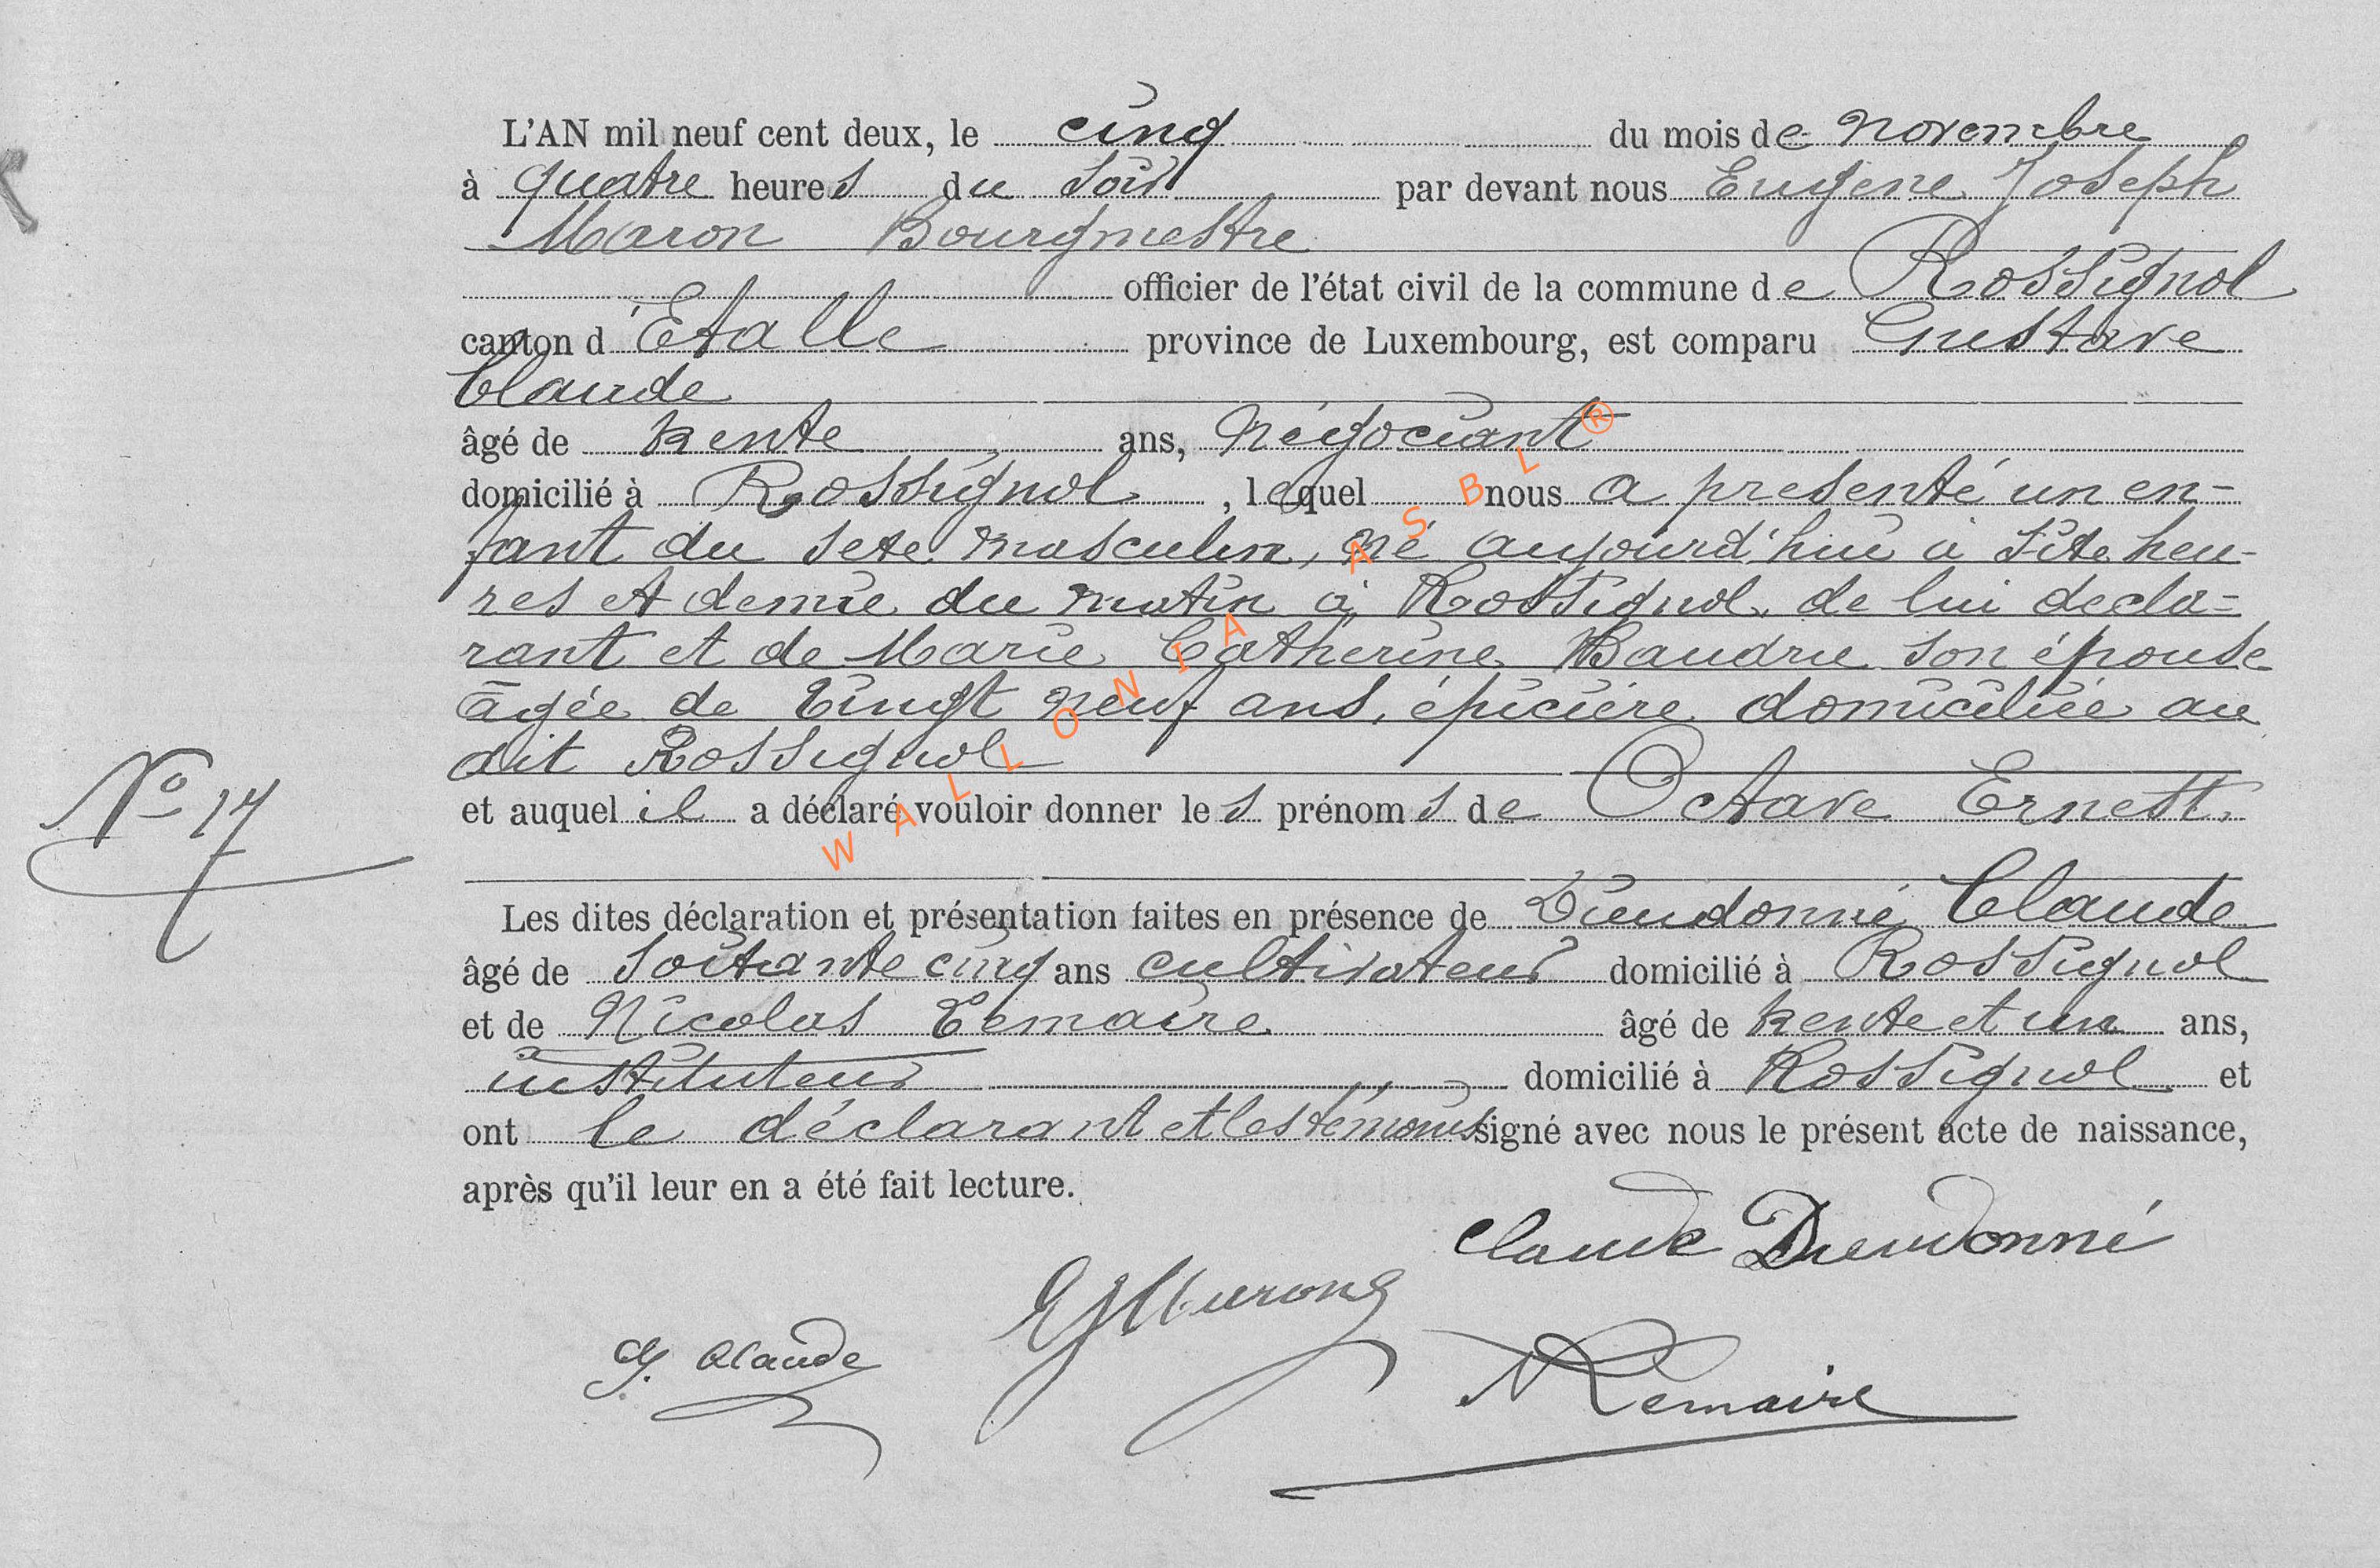 L'AN mil neuf cent deux, le cinq du mois de novembre
à quatre heures du soir par devant nous Eugène Joseph
Maron Bourgmestre
officier de l'état civil de la commune de Rossignol
canton d'Etalle province de Luxembourg, est comparu Gustave
Claude
âgé de trente ans, négociant
domicilié à Rossignol, lequel nous a presenté un en-
fant du sexe masculin, né aujourd'hui à heu-
res et demie du matin à Rossignol de lui decla-
rant et de Marie Catherine Baudru son épouse
âgée de vingt neuf ans, épicière domiciliée au
dit Rossignol
N° 17
et auquel il a déclaré vouloir donner les prénoms de Octave Ernest.
Les dites déclaration et présentation faites en présence de Dieudonné Claude
âgé de soixante cinq ans cultivateur domicilié à Rossignol
et de Nicolas Lemaire âgé de trente et un ans,
instituteur domicilié à Rossignol et
ont le déclarant et les témoins signé avec nous le présent acte de naissance,
après qu'il leur en a été fait lecture.
Claude Dieudonné
EJMaron
G. Claude
NLemaire
WALLONIA ASBL ®